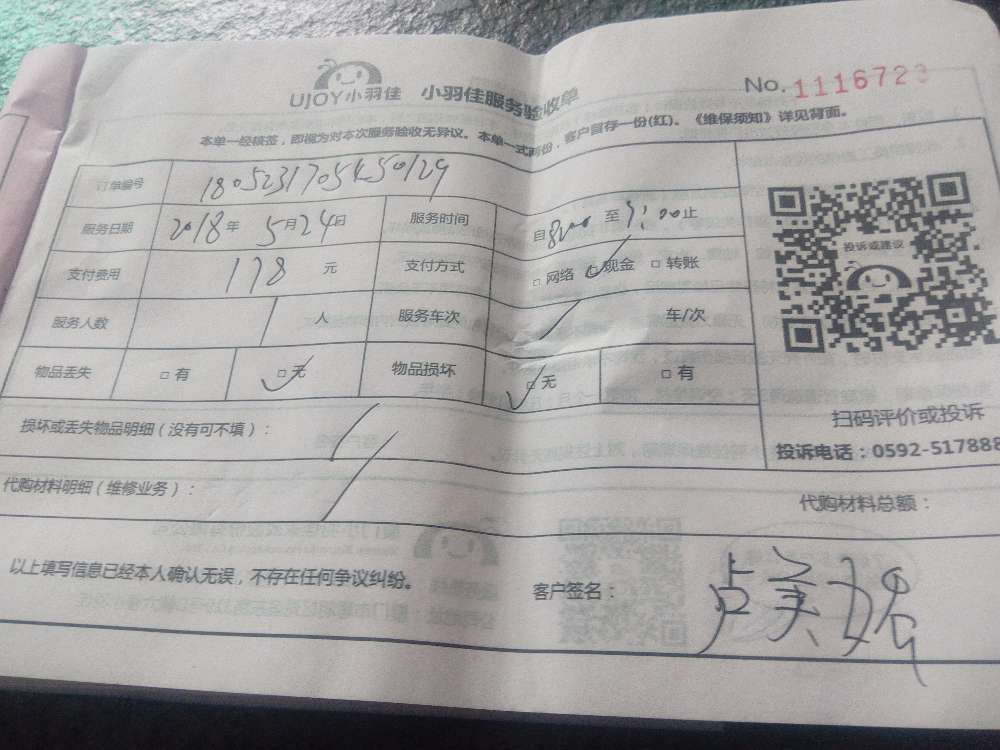 UJOY小羽佳 小羽佳服务验收单 No. 1116723
本单一经核签，即视为对本次服务验收无异议。本单一式两份，客户留存一份(红)。《维保须知》详见背面。
订单编号 1805231705450129
服务日期 2018年 5月24日 服务时间 自8:00 至 :00止
支付费用 178 元 支付方式 □ 网络 □ 现金 □ 转账
服务人数 人 服务车次 车/次
物品丢失 □ 有 □ 无 物品损坏 □ 无 □ 有
损坏或丢失物品明细（没有可不填）：
代购材料明细（维修业务）： 代购材料总额：
以上填写信息已经本人确认无误，不存在任何争议纠纷。 客户签名： 卢美
投诉或建议
扫码评价或投诉
投诉电话：0592-517888